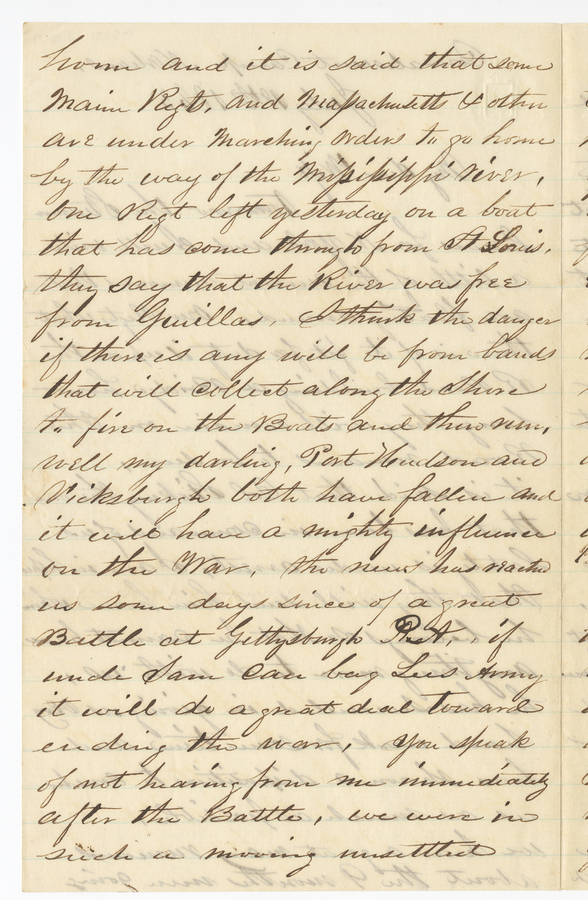 home and it is said that some
Maine Regts, and Massachusetts & others
are under Marching orders to go home
by the way of the Missisippi river,
One Regt left yesterday on a boat
that has come through from St Louis,
they say that the River was free
from Gurillas, I think the danger
if there is any will be from bands
that will collect along the Shore
to fire on the Boats and then run,
well my darling, Port Hudson and
Vicksburgh both have fallen and
it will have a mighty influence
on the War, the news has reached
us some days since of a great
Battle at Gettysburgh if
uncle Sam can bag Lees Army
it will do a great deal toward
ending the war, You speak
of not hearing from me immediately
after the Battle, we were in
such a moving unsettled